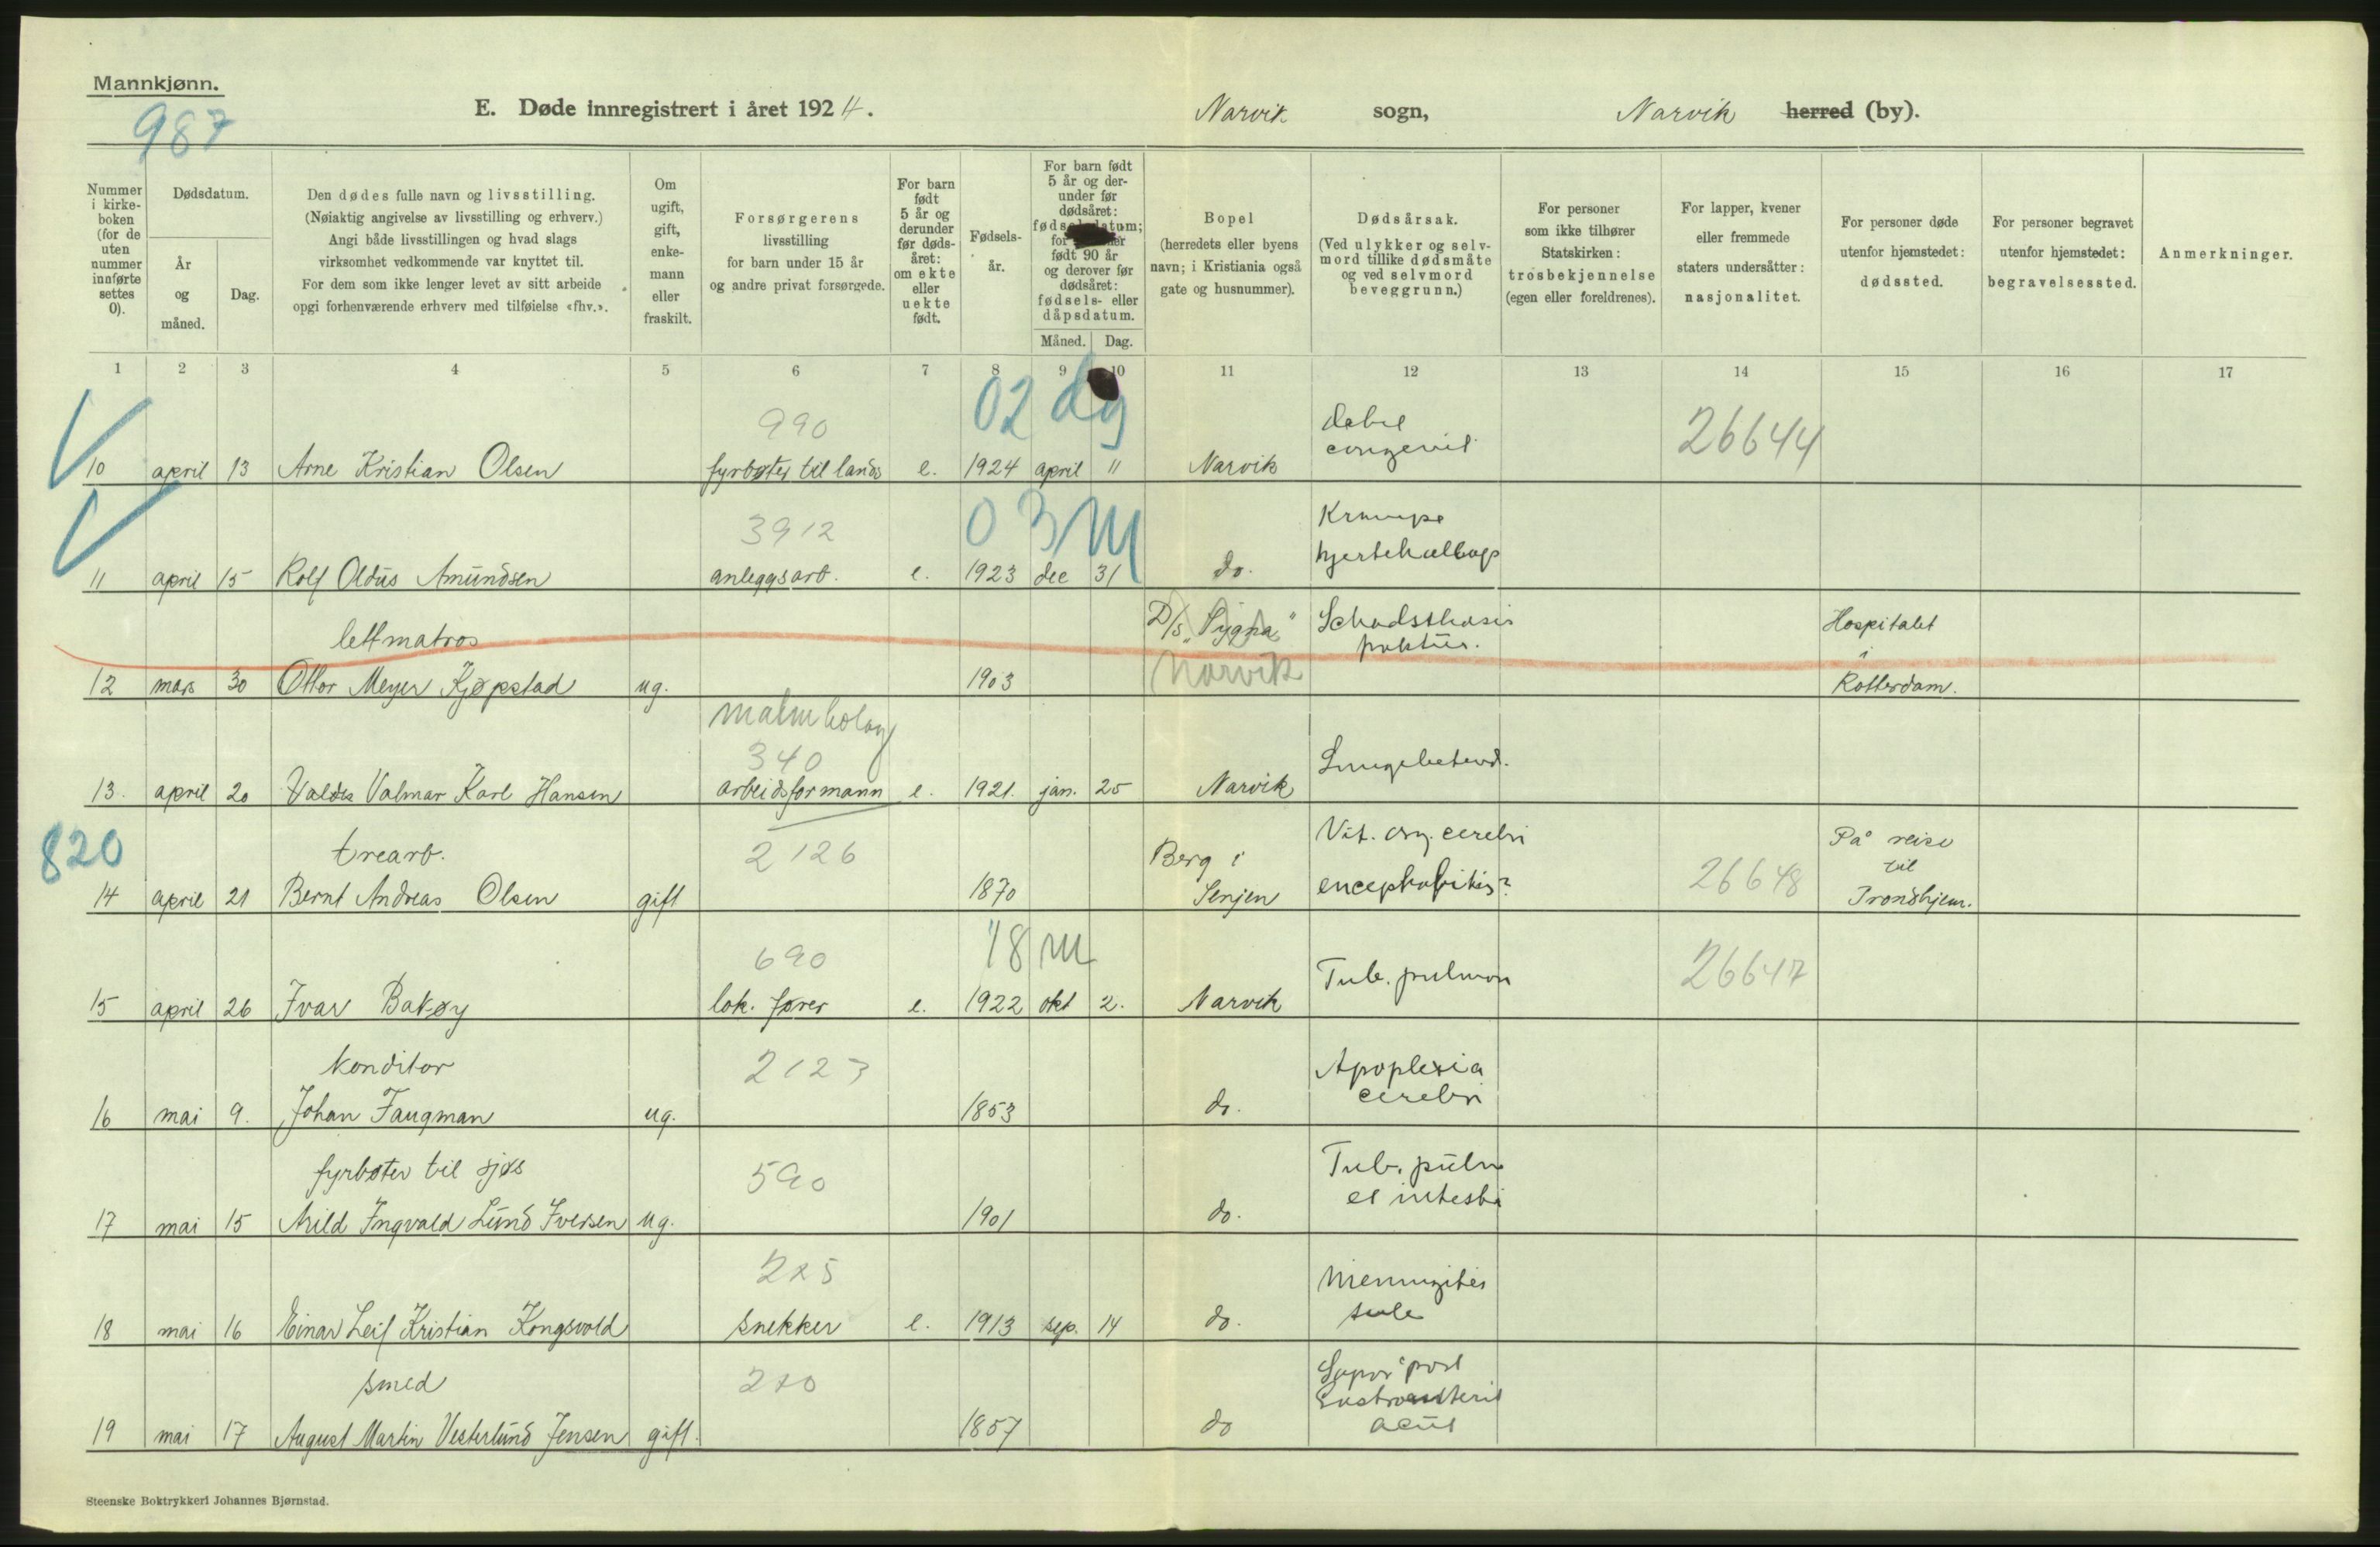 Mannkjønn.
987
E. Døde innregistrert i året 1924. Narvik sogn, Narvik herred (by).
Nummer i kirkeboken (for de uten nummer innførte settes 0).
Dødsdatum.
År og måned.
Dag.
Den dødes fulle navn og livsstilling.
(Nøiaktig angivelse av livsstilling og erhverv.)
Angi både livsstillingen og hvad slags
virksomhet vedkommende var knyttet til.
For dem som ikke lenger levet av sitt arbeide
opgi forhenværende erhverv med tilføielse «fhv.».
Om ugift, gift, enkemann eller fraskilt.
Forsørgerens
livsstilling
for barn under 15 år
og andre privat forsørgede.
For barn født 5 år og derunder før dødsåret: om ekte eller uekte født.
Fødselsår.
For barn født 5 år og derunder før dødsåret:
født 90 år og derover før dødsåret: fødsels- eller dåpsdatum.
Måned. Dag.
Bopel
(herredets eller byens
navn; i Kristiania også
gate og husnummer).
Dødsårsak.
(Ved ulykker og selvmord tillike dødsmåte og ved selvmord beveggrunn.)
For personer
som ikke tilhører
Statskirken:
trosbekjennelse
(egen eller foreldrenes).
For lapper, kvener
eller fremmede
staters undersåtter:
nasjonalitet.
For personer døde
utenfor hjemstedet:
dødssted.
For personer begravet
utenfor hjemstedet:
begravelsessted.
Anmerkninger.
1 2 3 4 5 6 7 8 9 10 11 12 13 14 15 16 17
990 02 dg debil 26644
congenit
10 april 13 Arne Kristian Olsen fyrbøter til lands e. 1924 april 11 Narvik
3912 03 M Krampe
11 april 15 Rolf Oldus Amundsen anleggsarb. e. 1923 dec 31 do.
lettmatros D/S „Sygna" Hospitalet
Narvik i
12 mars 30 Ottor Meyer Kjøpstad ug. 1903 Rotterdam.
340 Lungebetend.
13. april 20 Valdis Valmar Karl Hansen arbeidsformann e. 1921. jan. 25 Narvik
820 trearb. 2126 Berg i Vit. org. cerebri På reise
til
14 april 21 Bernt Andreas Olsen gift 1870 Senjen encephalitis? 26648 Trondhjem.
690 18 M Tub. pulmon 26647
15 april 26 Ivar Bakøy lok. fører e. 1922 okt 2. Narvik
konditor 2123 Apoplexia
cerebri
16 mai 9. Johan Faugman ug. 1853 do.
fyrbøter til sjøs 590 Tub. pulm
et intesti
17 mai 15 Arild Ingvald Lund Iversen ug. 1901 do.
Meningitis
18 mai 16 Einar Leif Kristian Kongsvold snekker e. 1913 sep. 14 do.
smed Sopor post
acut
19 mai 17 August Martin Vesterlund Jensen gift. 1857 do
Steenske Boktrykkeri Johannes Bjørnstad.